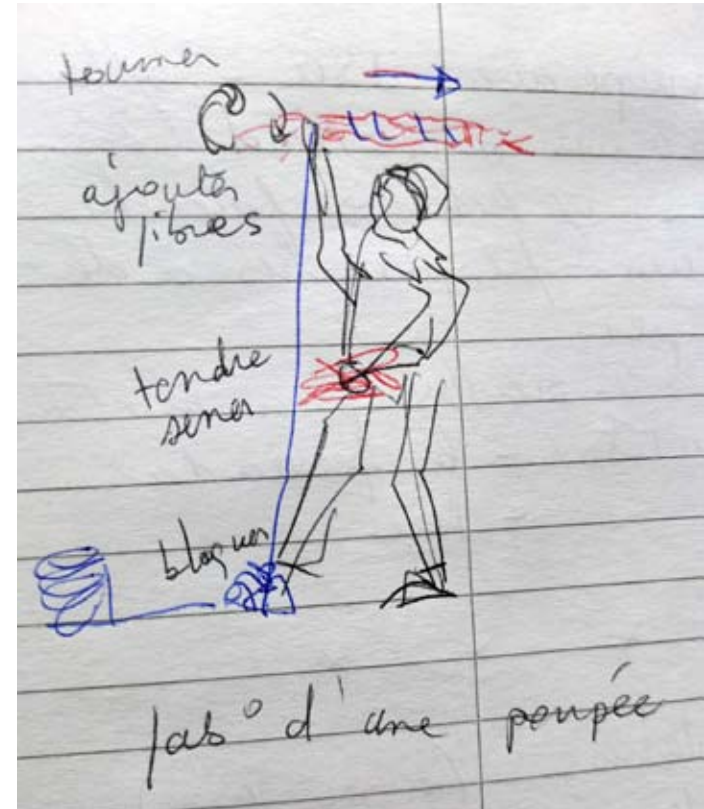 tourner
ajouter
fibres
tendre
serrer
bloquer
fab° d'une poupée